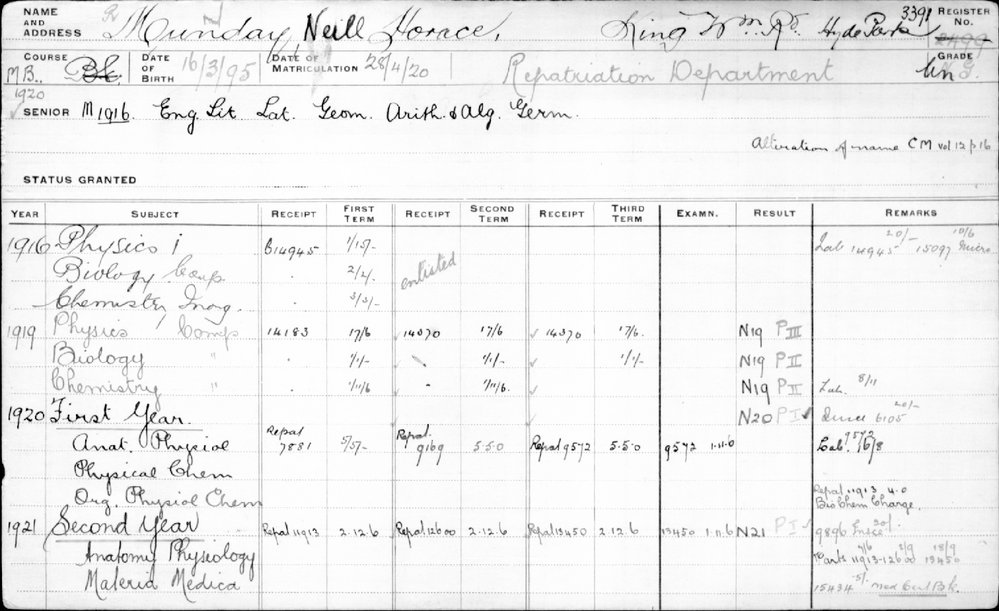 NAME AND ADDRESS Munday, Neill Horace, King Wm Rd Hyde Park 3391 REGISTER No. 2499
COURSE M B.. Bc DATE OF BIRTH 16/3/95 DATE OF MATRICULATION 28/4/20 Repatriation Department GRADE Un
1920
SENIOR M 1916. Eng. Lit. Lat. Geom. Arith. & Alg. Germ.
Alteration of name C M vol 12 p 16
STATUS GRANTED
YEAR SUBJECT RECEIPT FIRST TERM RECEIPT SECOND TERM RECEIPT THIRD TERM EXAMN. RESULT REMARKS
1916 Physics i B14945 1/15/- Lab 14945 20/- 15097 10/6 Micro
Biology Comp . 2/2/. enlisted
Chemistry Inorg. 3/3/-
1919 Physics Comp 14183 17/6 14370 17/6 14370 17/6. N19 P III
Biology " . 1/1/- 1/1/- 1/1/- N19 P II
Chemistry " . 1/11/6 " 1/11/6. N19 P II Lab. 8/11
1920 First Year. N20 P I 6105 20/-
Anat. Physiol Repat 7881 5/5/- Repat. 9169 5.5.0 Repat 9572 5.5.0 9572 1.11.6 Lab. 9572 16/8
Physical Chem
Org. Physiol Chem Repat 11913 4.0
Bio Chem Charge.
1921 Second Year Repat 11913 2.12.6 Repat 12600 2.12.6 Repat 13450 2.12.6 13450 1.11.6 N21 P I 9896 Micro 20/.
Anatomy Physiology Parts 11913-12600 13450 7/6 2/9 18/9
Materia Medica 15434 5/- Med Cert Bk.